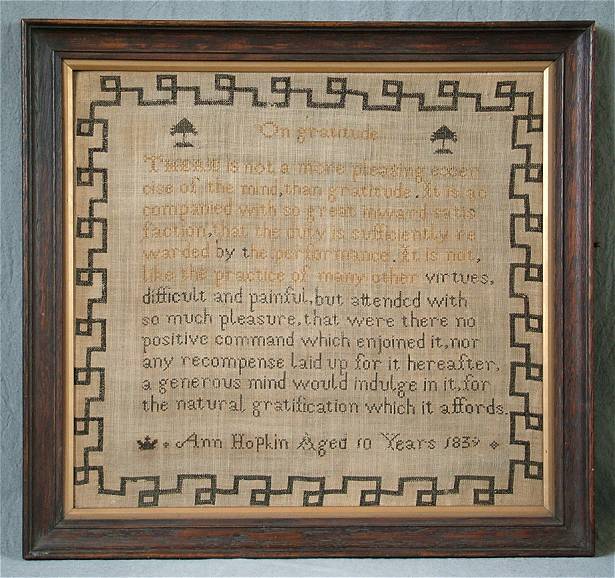 On gratitude
THERE is not a more pleasing exer
cise of the mind, than gratitude. It is ac
companied with so great inward satis
faction, that the duty is sufficiently re
warded by the performance. It is not,
like the practice of many other virtues,
difficult and painful, but attended with
so much pleasure, that were there no
positive command which enjoined it, nor
any recompense laid up for it hereafter,
a generous mind would indulge in it, for
the natural gratification which it affords.
Ann Hopkin Aged 10 Years 1839